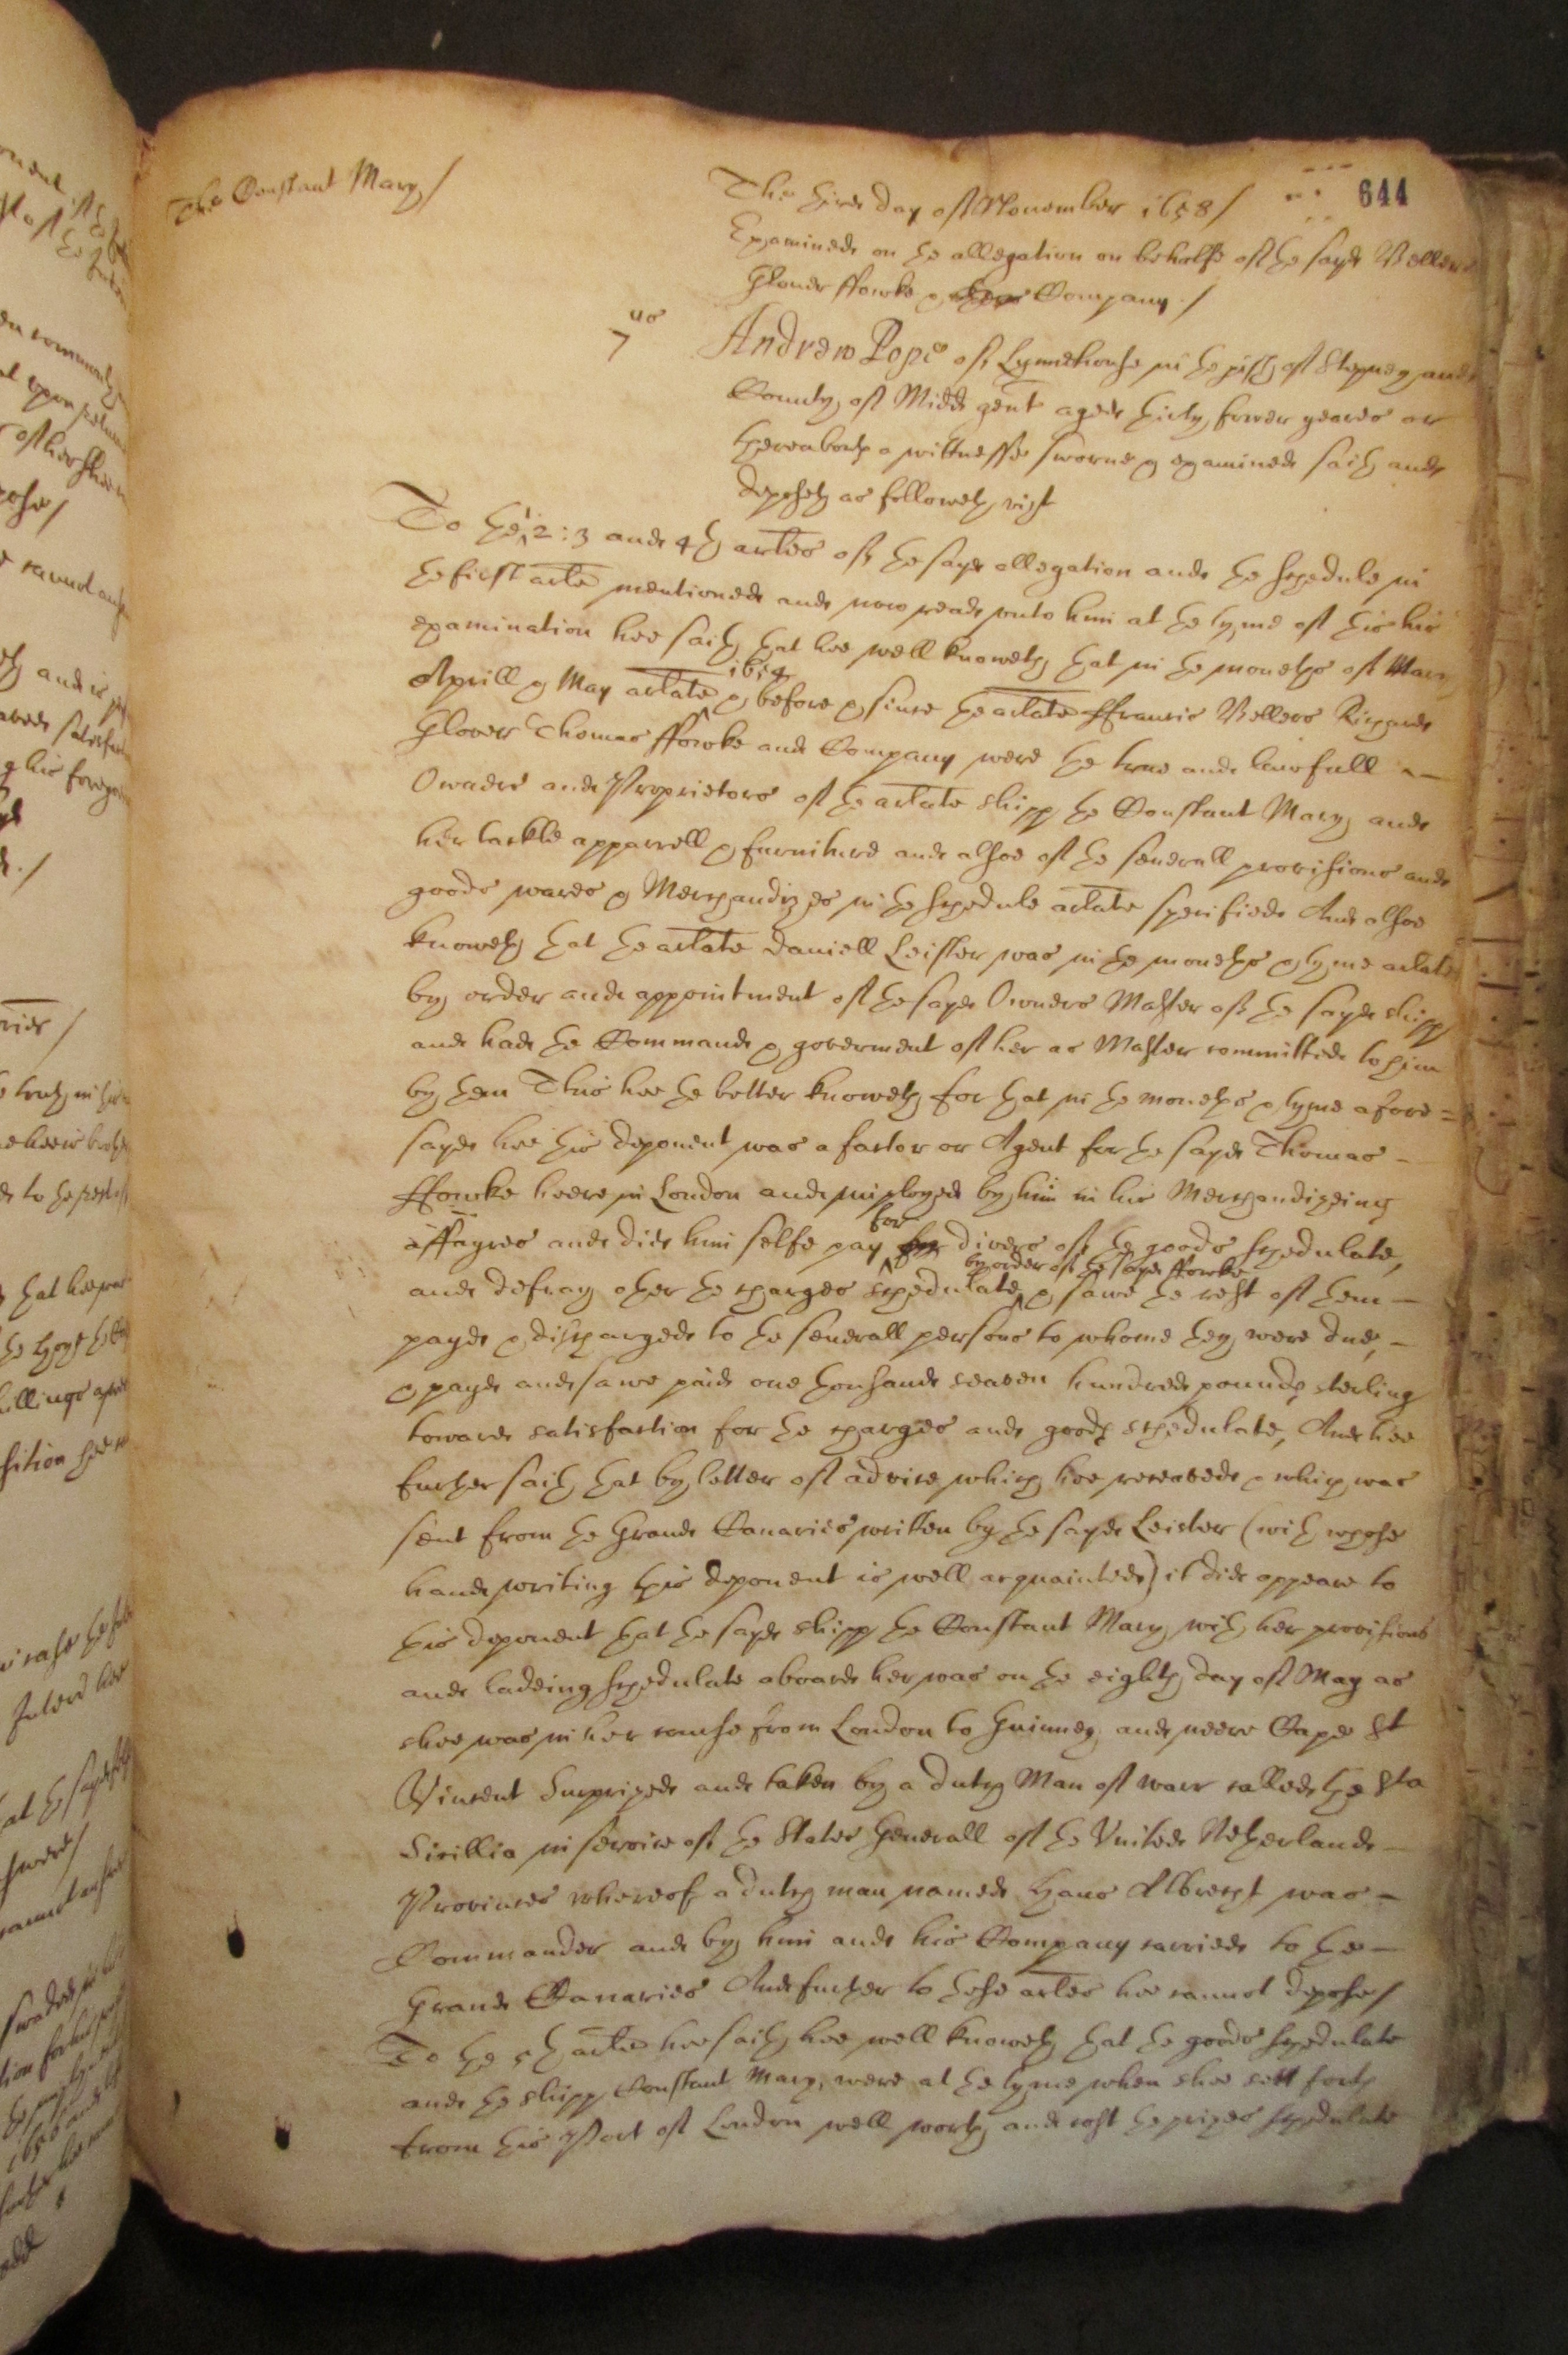 The Constant Mary /
644
The third day of November 1658 /
Examined on the allegation on behalfe of the sayd Vellers
Glover ffowke & Company. /
7us
Andrew Pope of Lymehouse in the pish of Stepney and
County of Midd gent aged thirty fower yeares or
thereabouts a wittnesse sworne & examined saith and
deposeth as followeth vizt
To the 1, 2 : 3 and 4th arles of the sayd allegation and the schedule in
the first arle mentioned and now read unto him at the tyme of this his
examination hee saith that hee well knoweth that in the moneths of Marc
Aprill & May arlate 1654 & before & since the arlate ffrancis Vellers Richard
Glover Thomas ffowke and Company were the true and lawfull -
Owners and Proprietors of the arlate shipp the Constant Mary and
her tackle apparrell & furniture and alsoe of the severall provisions and
goods wares & Merchandizes in the schedule arlate specified And alsoe
knoweth that the arlate Daniell Leister was in the moneths & tyme arlate
by order and appointment of the sayd Owners Master of the sayd shipp
and had the Command & goverment of her as Master committed to him
by them This hee the better knoweth for that in the moneths & tyme afore=
sayd hee this deponent was a factor or Agent for the sayd Thomas -
ffowke heere in London and imployed by him in his Merchandizeing
affayres and did him selfe pay for divers of the goods schedulate,
and defray other the charges schedulate by order of the sayd ffowke & sawe the rest of them -
payd & discharged to the severall persons to whome they were due, -
& payd and sawe paid one thousand seaven hundred pounds sterling
towards satisfaction for the charges and goods schedulate, And hee
further saith that by letter of advice which hee receaved & which was
sent from the Grand Canaries written by the sayd Leister (with whose
hand writing this deponent is well acquainted) it did appeare to
this deponent that the sayd shipp the Constant Mary with her provisions
and ladeing schedulate aboard her was on the eighth day of May as
shee was in her course from London to Guinney and neere Cape St
Vincent Surprized and taken by a dutch Man of warr called the Sta
Sicillia in service of the States Generall of the United Netherland -
Provinces whereof a dutch man named Hans Albrecht was -
Commander and by him and his Company carried to the -
Grand Canaries And further to these arles hee cannot depose /
To the 5th arle hee saith hee well knoweth that the goods schedulate
and the shipp Constant Mary, were at the tyme when shee sett forth
from this Port of London well worth and cost the prizes schedulate